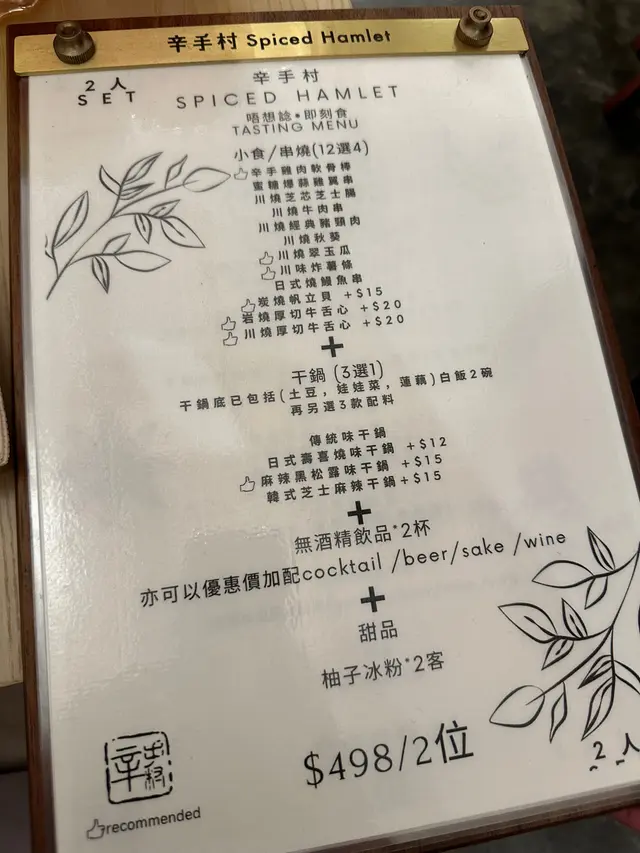 辛手村 Spiced Hamlet
2人
SET
辛手村
SPICED HAMLET
唔想諗•即刻食
TASTING MENU
小食/串燒(12選4)
辛手雞肉軟骨棒
蜜糖爆蒜雞翼串
川燒芝芯芝士腸
川燒牛肉串
川燒經典豬頸肉
川燒秋葵
川燒翠玉瓜
川味炸薯條
日式燒鰻魚串
炭燒帆立貝 +$15
岩燒厚切牛舌心 +$20
川燒厚切牛舌心 +$20
+
干鍋 (3選1)
干鍋底已包括(土豆, 娃娃菜, 蓮藕)白飯2碗
再另選3款配料
傳統味干鍋
日式壽喜燒味干鍋 +$12
麻辣黑松露味干鍋 +$15
韓式芝士麻辣干鍋+$15
+
無酒精飲品*2杯
亦可以優惠價加配cocktail /beer/sake /wine
+
甜品
柚子冰粉*2客
$498/2位
辛手村
2人
recommended